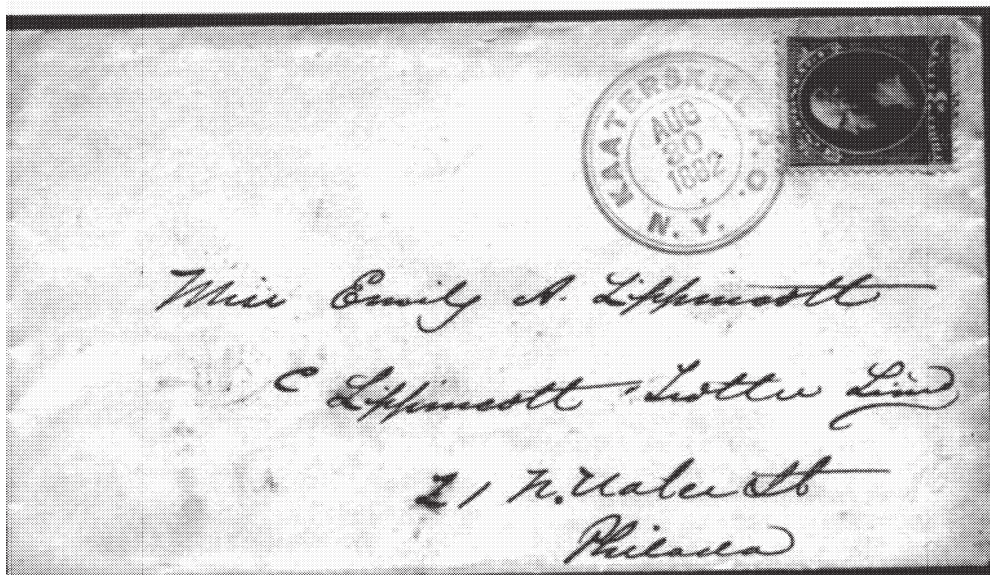 KAATERSKILL P.O.
AUG
30
1882
N.Y.
Miss Emily A. Lippincott
C Lippincott
21 N. Water St
Philada